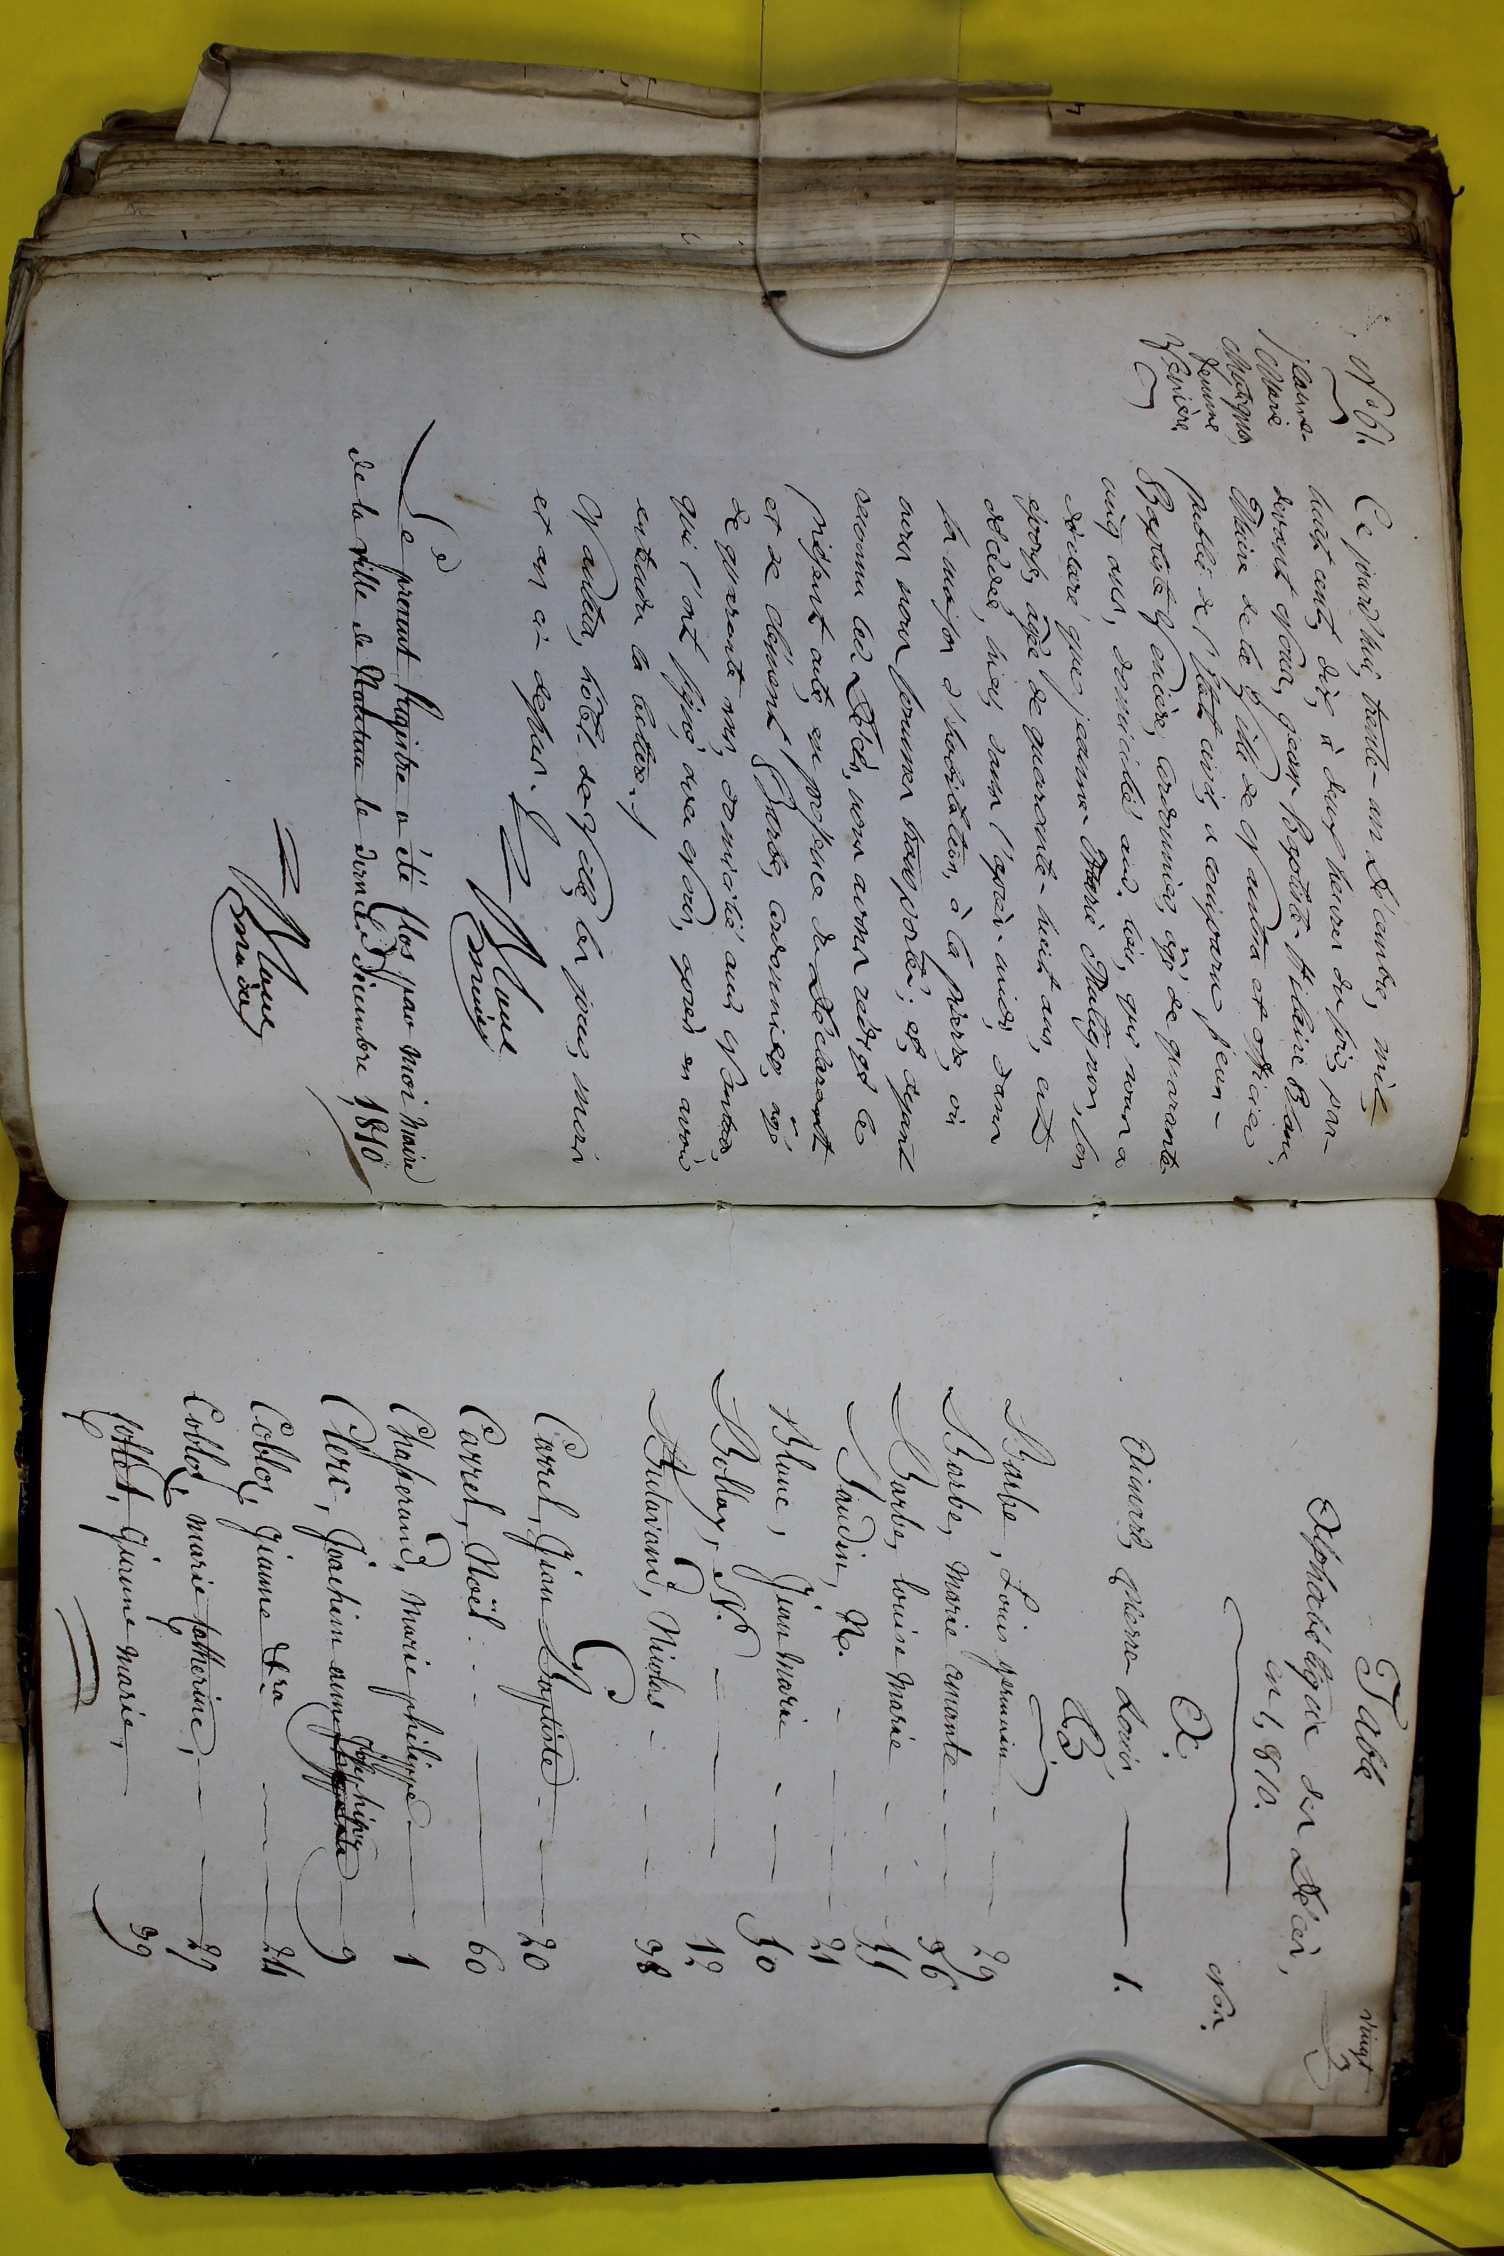 N.° 61.
jeanne-
Marie
Matignon,
femme
Venière.
Ce jourd'hui, trente-un Décembre, mil
huit cent, dix, à deux heures du soir, par-
devant Nous, jean Baptiste Hilaire Blanc,
Maire de la Ville de Nantua et officier
public de l'état civil, a comparu jean-
Baptiste Venière, cordonnier, agé de quarante
cinq ans, domicilié aud. lieu, qui nous a
déclaré que jeanne Marie Matignon, son
épouse, agée de quarante-huit ans, est
décédée, hier, dans l'après-midi, dans
sa maison d'habitation, à la pierre, où
nous nous sommes transporté; et, ayant
reconnu led. Décès, nous avons rédigé le
présent acte, en présence du Déclarant
et de Clément Barbe, cordonnier, agé
de quarante ans, domicilié aud. Nantua,
qui l'ont signé avec Nous, après en avoir
entendu la lecture./
Nantua, hôtel de Ville, les jour, mois
et an ci-dessus.
Blanc
Le présent Registre a été Clos par moi Maire
de la ville de Nantua le dernier décembre 1810
Blanc
vingt
Table
Alphabétique des Décès,
en 1,810.
Nos.
A.
Aimard, Pierre Louis, 1.
B
Barbe, Louis germain 29
Barbe, Marie amante 36
Barbe, louise Marie 55
Baudin, N. 21
Blanc, Jean Marie 50
Bollay, N. 12
Butavand, Nicolas 38
C
Carrel, Jean Baptiste 20
Carrel, Noël 60
Chaperand, Marie philippe 1
Clerc, Joachim anne Josephine 9
Coblos, Jeanne 24
Coblos, marie Catherine, 27
Jeanne Marie, 39